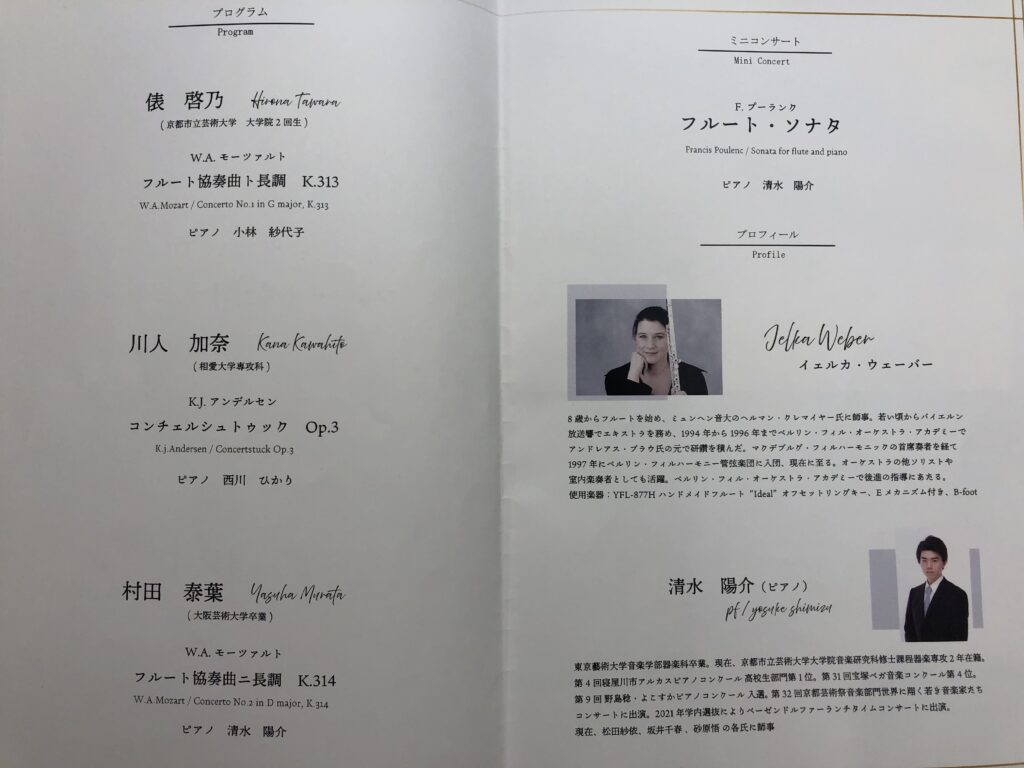 プログラム
Program
俵　啓乃　Hirona Tawara
(京都市立芸術大学　大学院2回生)
W.A. モーツァルト
フルート協奏曲ト長調　K.313
W.A.Mozart / Concerto No.1 in G major, K.313
ピアノ　小林　紗代子
川人　加奈　Kana Kawahito
(相愛大学専攻科)
K.J. アンデルセン
コンチェルシュトゥック　Op.3
K.j.Andersen / Concertstuck Op.3
ピアノ　西川　ひかり
村田　泰葉　Yasuha Murata
(大阪芸術大学卒業)
W.A. モーツァルト
フルート協奏曲ニ長調　K.314
W.A.Mozart / Concerto No.2 in D major, K.314
ピアノ　清水　陽介
ミニコンサート
Mini Concert
F. プーランク
フルート・ソナタ
Francis Poulenc / Sonata for flute and piano
ピアノ　清水　陽介
プロフィール
Profile
Jelka Weber
イェルカ・ウェーバー
8歳からフルートを始め、ミュンヘン音大のヘルマン・クレマイヤー氏に師事。若い頃からバイエルン
放送響でエキストラを務め、1994年から1996年までベルリン・フィル・オーケストラ・アカデミーで
アンドレアス・ブラウ氏の元で研鑽を積んだ。マクデブルグ・フィルハーモニックの首席奏者を経て
1997年にベルリン・フィルハーモニー管弦楽団に入団、現在に至る。オーケストラの他ソリストや
室内楽奏者としても活躍。ベルリン・フィル・オーケストラ・アカデミーで後進の指導にあたる。
使用楽器：YFL-877H ハンドメイドフルート “Ideal” オフセットリングキー、Eメカニズム付き、B-foot
清水　陽介（ピアノ）
pf / yosuke shimizu
東京藝術大学音楽学部器楽科卒業。現在、京都市立芸術大学大学院音楽研究科修士課程器楽専攻2年在籍。
第4回寝屋川市アルカスピアノコンクール高校生部門第1位。第31回宝塚ベガ音楽コンクール第4位。
第9回 野島稔・よこすかピアノコンクール 入選。第32回京都芸術祭音楽部門世界に翔く若き音楽家たち
コンサートに出演。2021年学内選抜によりベーゼンドルファーランチタイムコンサートに出演。
現在、松田紗依、坂井千春、砂原悟 の各氏に師事